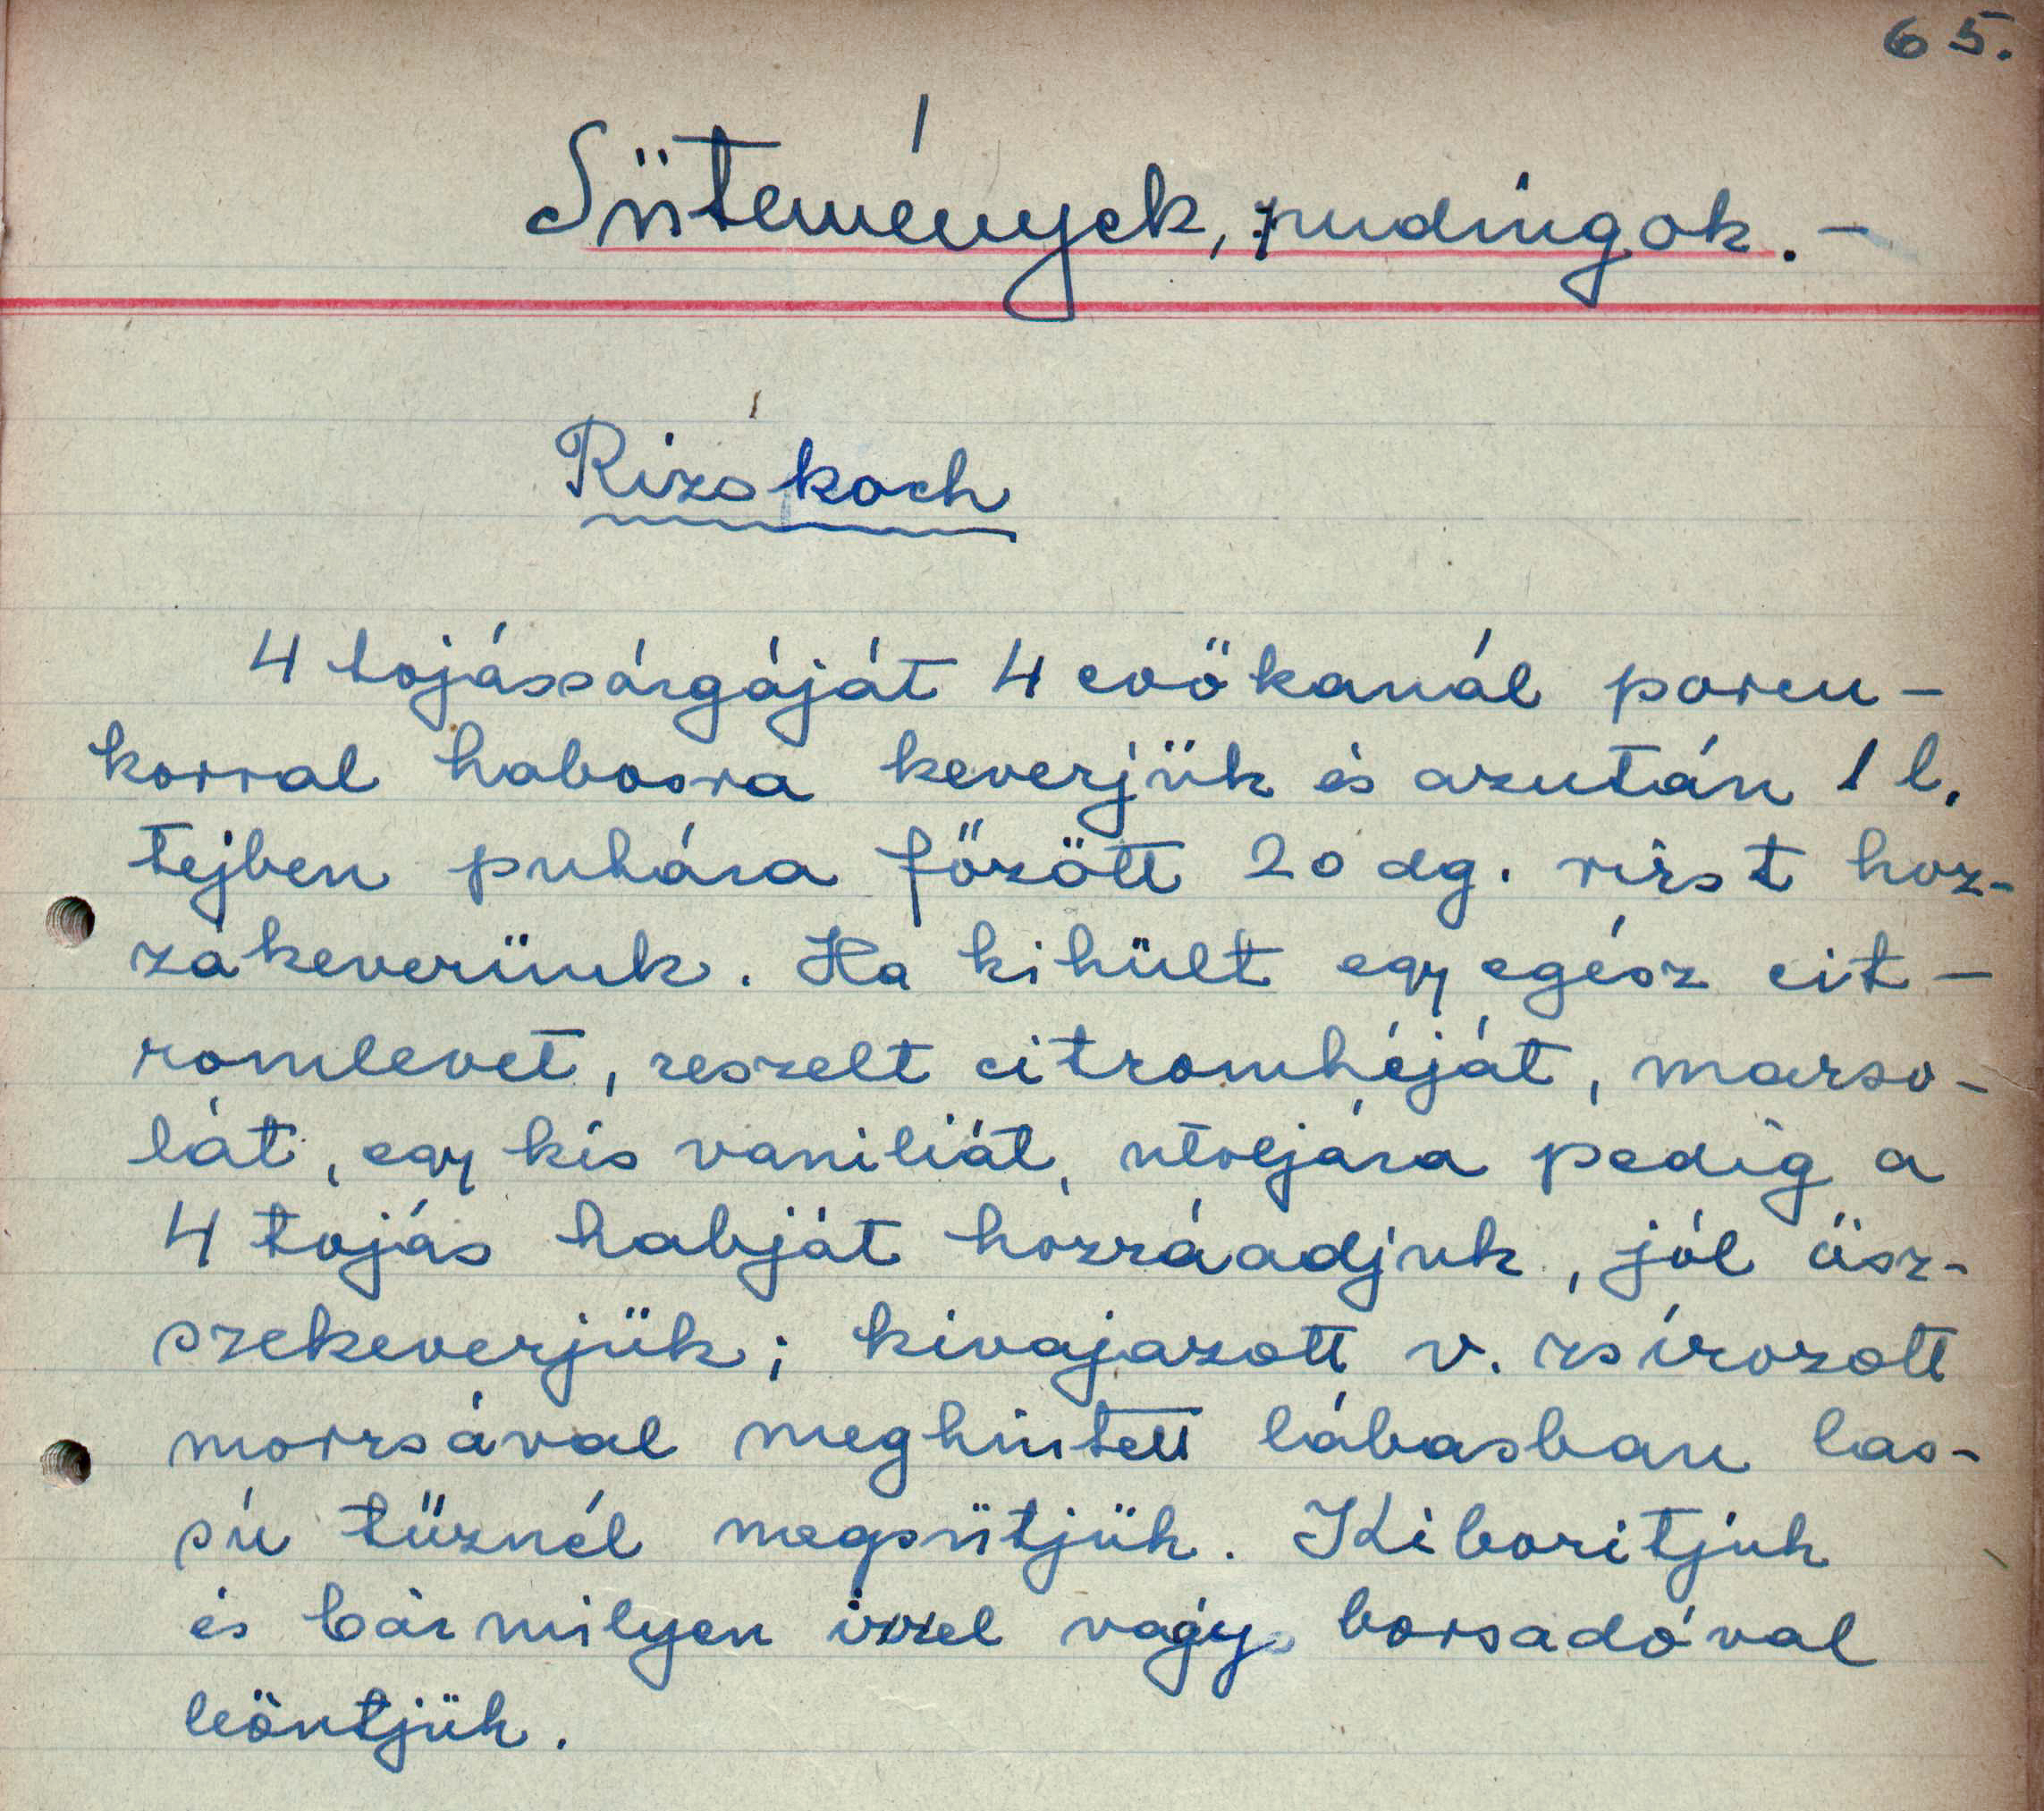 65.
Sütemények, pudingok. -
Rizskoch
4 tojássárgáját 4 evőkanál porcu-
korral habosra keverjük és azután 1 l.
tejben puhára főzött 20 dg. rizst hoz-
zákeverünk. Ha kihült egy egész cit-
romlevet, reszelt citromhéját, mazso-
lát, egy kis vaniliát, utoljára pedig a
4 tojás habját hozzáadjuk, jól ösz-
szekeverjük; kivajazott v. zsírozott
morzsával meghintett lábasban las-
sú tűznél megsütjük. Kiborítjuk
és bármilyen ízzel vagy borsadóval
leöntjük.